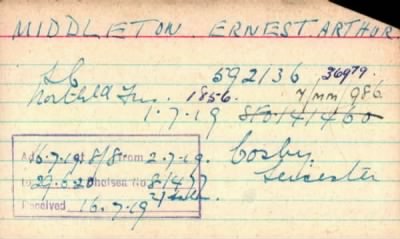 MIDDLETON ERNEST ARTHUR
LC 592136 36979.
Northld Fus. 1856. 7/MM 986
1.7.19
Cosby,
Leicester
16.7.19 8/8 from 2.7.19.
to 29.6.20 Chelsea No 8/4
Received 16.7.19